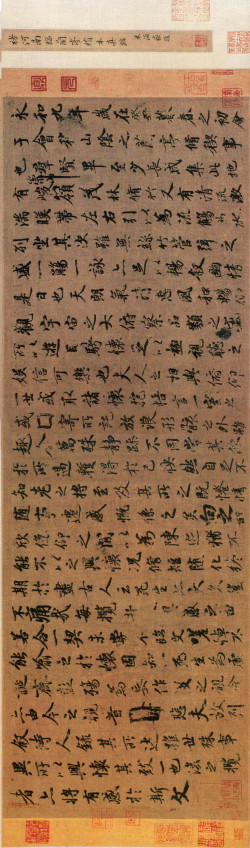 褚河南臨蘭亭絹本真跡
永和九年歲在癸丑暮春之初會
于會稽山陰之蘭亭脩稧事
也群賢畢至少長咸集此地
有崇山峻領茂林脩竹又有清流激
湍暎帶左右引以為流觴曲水
列坐其次雖無絲竹管弦之
盛一觴一詠亦足以暢敘幽情
是日也天朗氣清惠風和暢仰
觀宇宙之大俯察品類之盛
所以遊目騁懷足以極視聽之
娛信可樂也夫人之相與俯仰
一世或取諸懷抱悟言一室之內
或因寄所託放浪形骸之外雖
趣舍萬殊靜躁不同當其欣
於所遇暫得於己怏然自足不
知老之將至及其所之既惓情
隨事遷感慨係之矣向之所
欣俛仰之間以為陳迹猶不
能不以之興懷況脩短隨化終
期於盡古人云死生亦大矣豈
不痛哉每攬昔人興感之由
若合一契未嘗不臨文嗟悼不
能喻之於懷固知一死生為虛
誕齊彭殤為妄作後之視今
亦由今之視昔悲夫故列
敘時人錄其所述雖世殊事
異所以興懷其致一也後之攬
者亦將有感於斯文